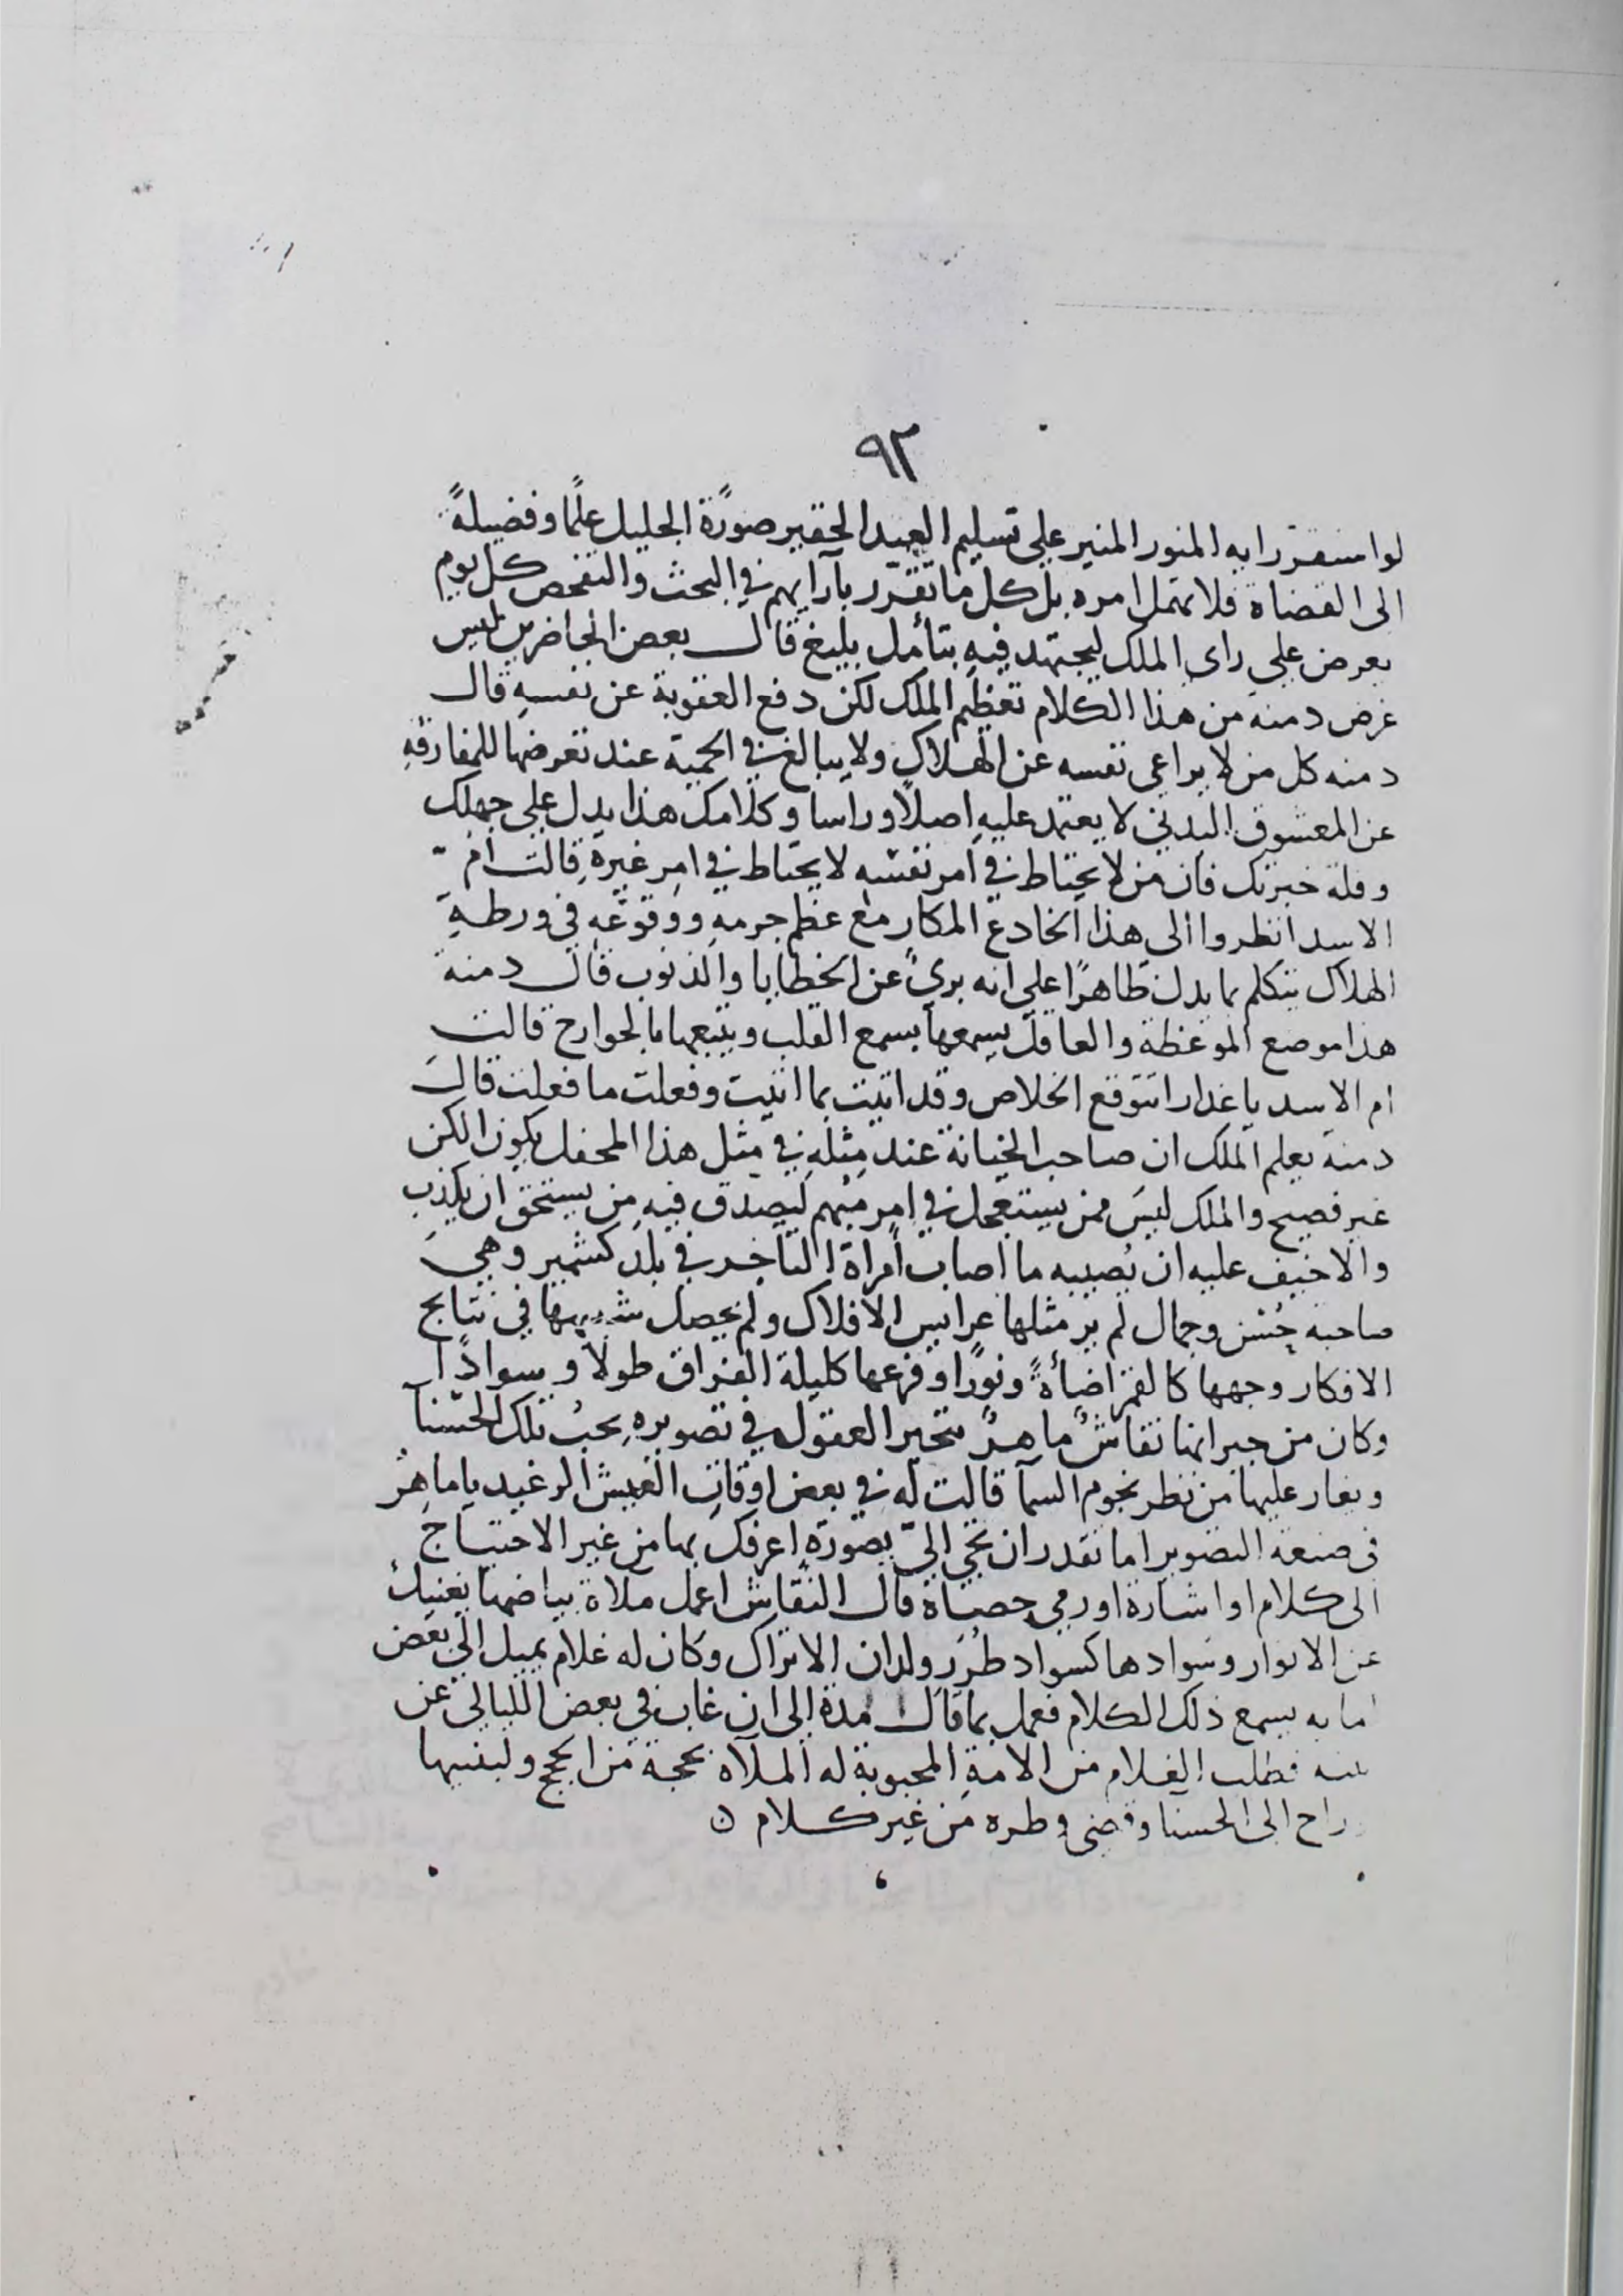 ٩٢
لو استقر رايه المنور المنير على تسليم العبد الحقير صورًة الجليل علمًا وفضيلةً
الى القضاة فلا تهمل امره بل كل ما تقرر بآرايهم في البحث والتفحص كل يوم
يعرض على راى الملك ليجتهد فيه بتأمل بليغ قال بعض الحاضرين ليس
غرض دمنه من هذا الكلام تعظيم الملك لكن دفع العقوبة عن نفسه قال
دمنه كل من لا يراعى نفسه عن الهلاك ولا يبالغ في الحمية عند تعرضها للمفارقه
عن المعشوق البدني لا يعتمد عليه اصلًا وراسا وكلامك هذا يدل على جهلك
وقلة خبرتك فان من لا يحتاط في امر نفسه لا يحتاط في امر غيره قالت ام
الاسد انظروا الى هذا الخادع المكار مع عظم جرمه ووقوعه في ورطة
الهلاك يتكلم بما يدل ظاهرًا على انه برئ عن الخطايا والذنوب قال دمنة
هذا موضع الموعظة والعاقل يسمعها بسمع القلب ويتبعها بالجوارح قالت
ام الاسد يا غدار اتتوقع الخلاص وقد اتيت بما اتيت وفعلت ما فعلت قال
دمنه يعلم الملك ان صاحب الخيانة عند مثله في مثل هذا المحفل يكون الكن
غير فصيح والملك ليس ممن يستعجل في امر مبهم ليصدق فيه من يستحق ان يكذب
والا خيف عليه ان يصيبه ما اصاب امراة التاجر في بلد كشمير وهي
صاحبة حُسْن وجمال لم ير مثلها عرايس الافلاك ولم يحصل شبيهها في نتايج
الافكار وجهها كالقمر اضأة ونورًا وفرعها كليلة الفراق طولًا وسوادًا
وكان من جيرانها نقاش ماهر تتحير العقول في تصويره يحب تلك الحسنآ
ويغار عليها من نظر نجوم السمآ قالت له في بعض اوقات العيش الرغيد يا ماهر
فى صنعة التصوير اما تقدر ان تجي اليّ بصورة اعرفك بها من غير الاحتياج
الى كلام او اشارة او رمي حصاة قال النقاش اعمل ملاة بياضها يغنيك
عن الانوار وسوادها كسواد طُرَر ولدان الاتراك وكان له غلام يميل الى بعض
امايه يسمع ذلك الكلام فعمل بما قال مدة الى ان غاب في بعض الليالي عن
بيته فطلب الغلام من الامة المحبوبة له الملآة بحجة من الحجج ولبسها
راح الى الحسنا وقضى وطره من غير كلام